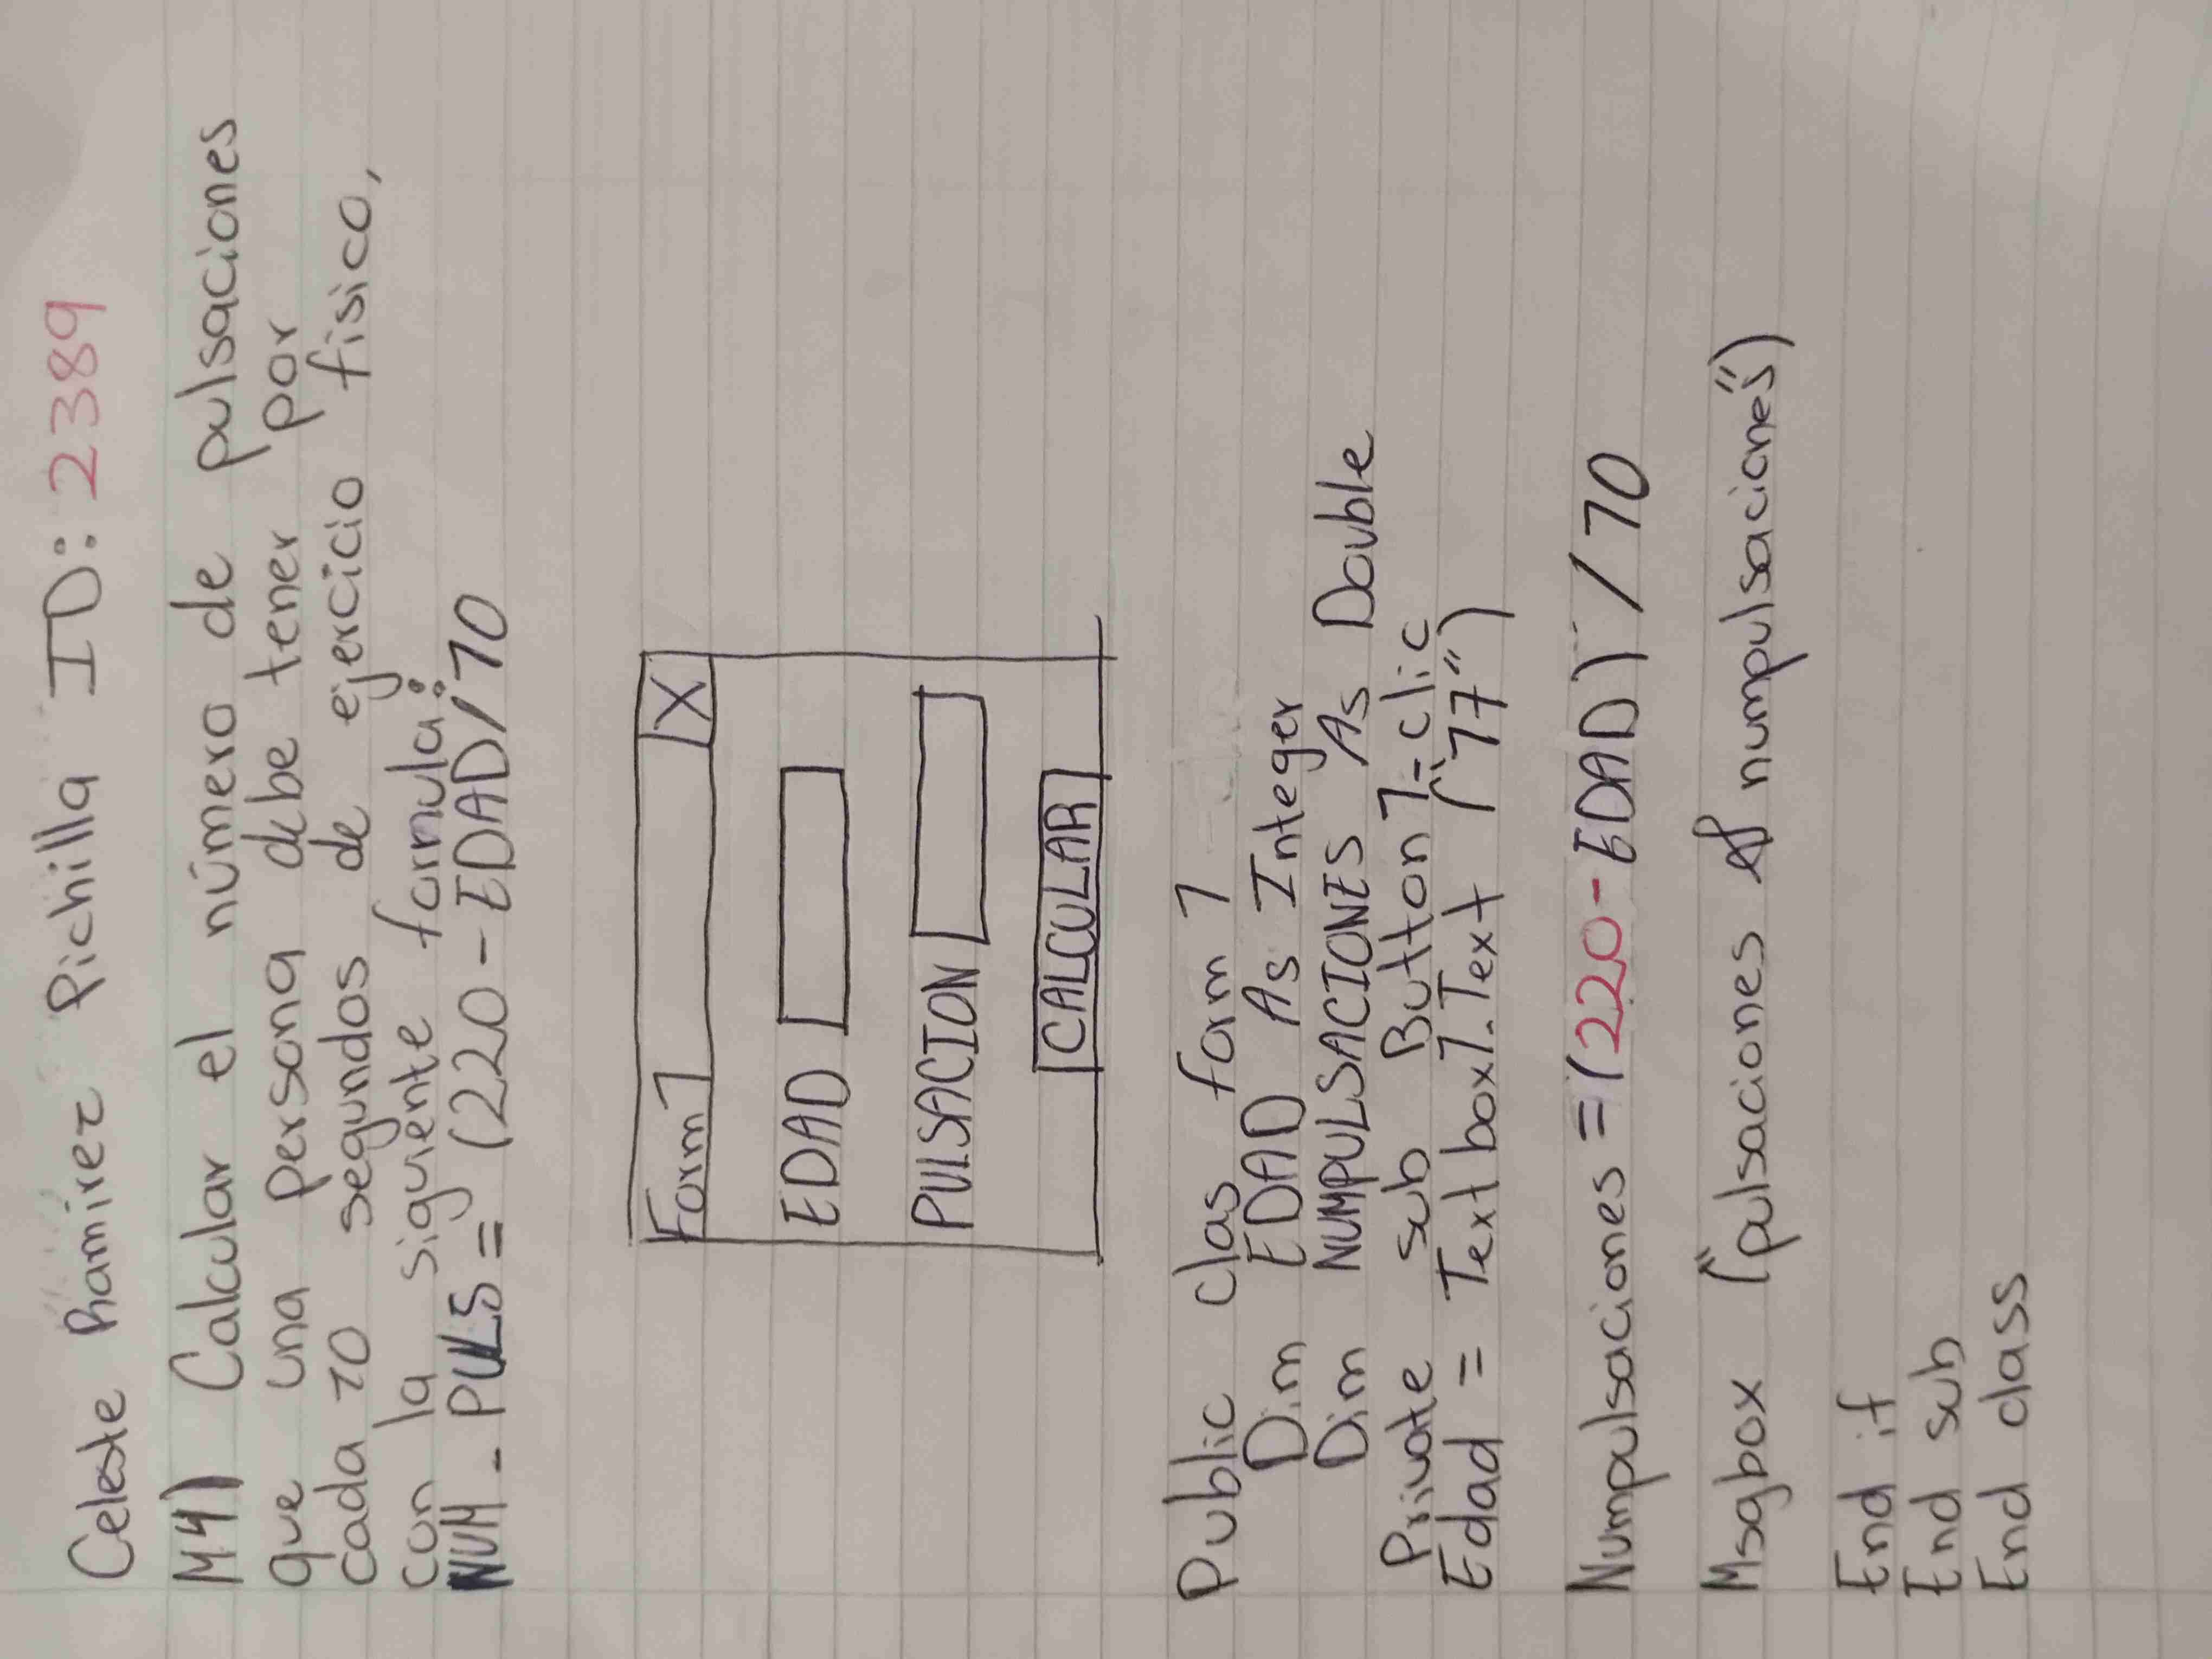 Celeste Ramírez Pichilla ID: 2389
M4) Calcular el número de pulsaciones
que una persona debe tener por
cada 10 segundos de ejercicio fisico,
con la siguiente formula:
NUM_PULS = (220-EDAD)/10
Form1 X
EDAD
PULSACION
CALCULAR
Public Clas form 1
Dim EDAD As Integer
Dim NUMPULSACIONES As Double
Private sub Button1-clic
Edad = Textbox1.Text ("77")
Numpulsaciones = (220-EDAD) / 10
Msgbox ("pulsaciones & numpulsaciones")
End if
End sub
End class